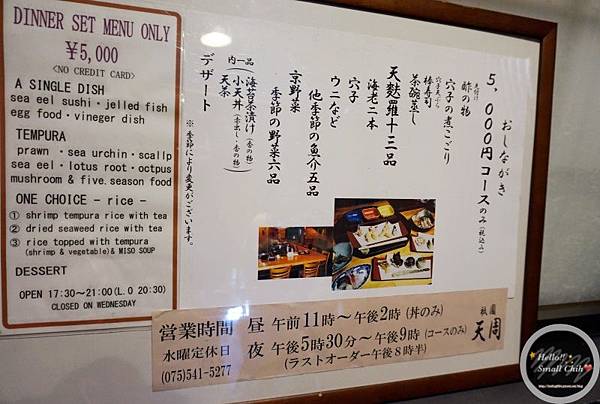 DINNER SET MENU ONLY
¥5,000
<NO CREDIT CARD>
A SINGLE DISH
sea eel sushi・jelled fish
egg food・vineger dish
TEMPURA
prawn ・sea urchin・scallp
sea eel・lotus root・octpus
mushroom & five. season food
ONE CHOICE - rice -
① shrimp tempura rice with tea
② dried seaweed rice with tea
③ rice topped with tempura
(shrimp & vegetable)& MISO SOUP
DESSERT
OPEN 17:30～21:00(L.O 20:30)
CLOSED ON WEDNESDAY
おしながき
5,000円コースのみ(税込み)
酢の物
穴子の煮こごり
棒寿司
茶碗蒸し
天麩羅十三品
海老二本
穴子
ウニなど
他季節の魚介五品
京野菜
季節の野菜六品
内一品
海苔茶漬け(香の物)
小天丼(赤出し・香の物)
天茶
デザート
※季節により変更がございます。
営業時間 昼 午前11時～午後2時(丼のみ)
水曜定休日 夜 午後5時30分～午後9時(コースのみ)
(075)541-5277 (ラストオーダー午後8時半)
祇園
天周
Hello!!
Small Chih